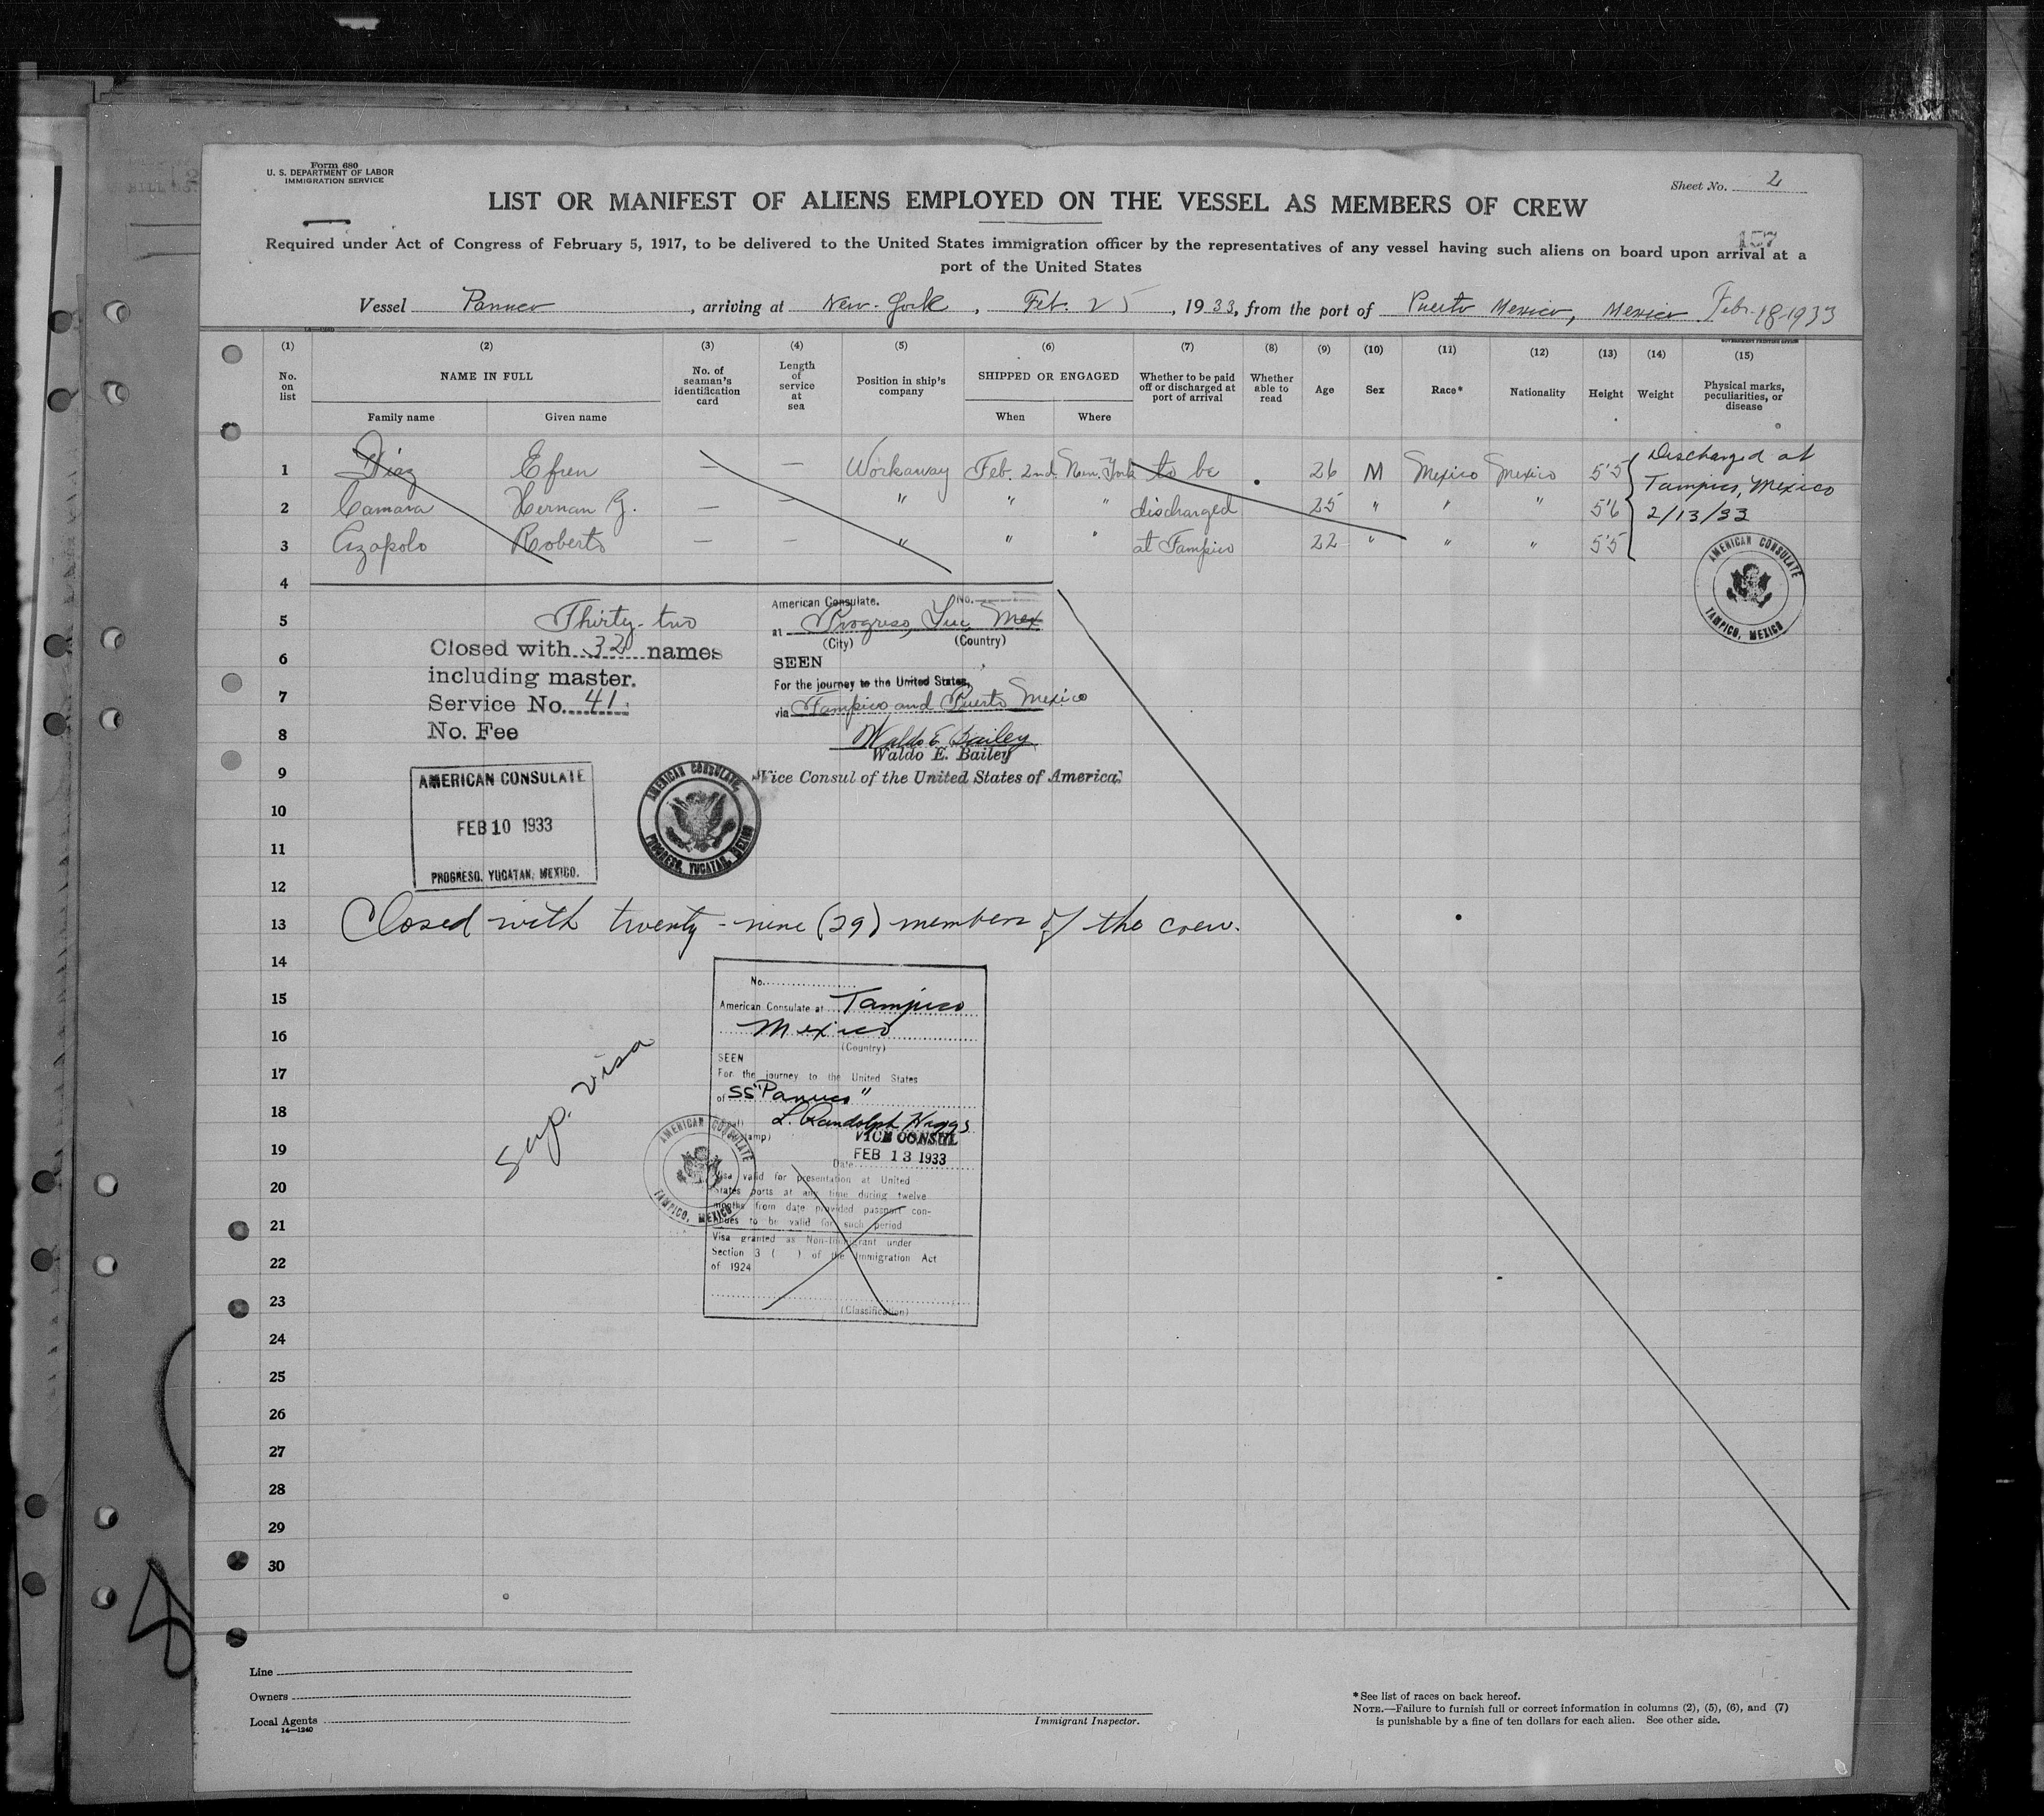 Form 680
U. S. DEPARTMENT OF LABOR
IMMIGRATION SERVICE
Sheet No. 2
LIST OR MANIFEST OF ALIENS EMPLOYED ON THE VESSEL AS MEMBERS OF CREW
157
Required under Act of Congress of February 5, 1917, to be delivered to the United States immigration officer by the representatives of any vessel having such aliens on board upon arrival at a
port of the United States
Vessel Panuco, arriving at New-York, Feb. 25, 1933, from the port of Puerto Mexico, Mexico Feb. 18-1933
(1) (2) (3) (4) (5) (6) (7) (8) (9) (10) (11) (12) (13) (14) (15)
No. on list NAME IN FULL Family name Given name No. of seaman's identification card Length of service at sea Position in ship's company SHIPPED OR ENGAGED When Where Whether to be paid off or discharged at port of arrival Whether able to read Age Sex Race* Nationality Height Weight Physical marks, peculiarities, or disease
1 Diaz Efren — — Workaway Feb. 2nd New. York to be 26 M Mexico Mexico 5'5
2 Camara Hernan G. — — " " " discharged 25 " " " 5'6
3 Azapolo Roberto — — " " " at Tampico 22 " " " 5'5
Discharged at
Tampico, Mexico
2/13/33
AMERICAN CONSULATE
TAMPICO, MEXICO
4
5
6
7
8
9
10
11
12
13
14
15
16
17
18
19
20
21
22
23
24
25
26
27
28
29
30
Thirty-two
Closed with 32 names
including master.
Service No. 41
No. Fee
American Consulate. No.
at Progreso, Yuc, Mex
(City) (Country)
SEEN
For the journey to the United States,
via Tampico and Puerto Mexico
Waldo E. Bailey
Waldo E. Bailey
Vice Consul of the United States of America
AMERICAN CONSULATE
FEB 10 1933
PROGRESO, YUCATAN, MEXICO.
AMERICAN CONSULATE,
PROGRESO, YUCATAN, MEXICO
Closed with twenty-nine (29) members of the crew.
Sup. visa
No.
American Consulate at Tampico
Mexico
(Country)
SEEN
For the journey to the United States
of SS "Panuco"
L. Randolph Higgs
VICE CONSUL
FEB 13 1933
Date
Visa valid for presentation at United
States ports at any time during twelve
months from date provided passport con-
tinues to be valid for such period
Visa granted as Non-Immigrant under
Section 3 ( ) of the Immigration Act
of 1924
(Classification)
AMERICAN CONSULATE
TAMPICO, MEXICO
Line
Owners
Local Agents
14—1240
Immigrant Inspector.
*See list of races on back hereof.
NOTE.—Failure to furnish full or correct information in columns (2), (5), (6), and (7)
is punishable by a fine of ten dollars for each alien. See other side.